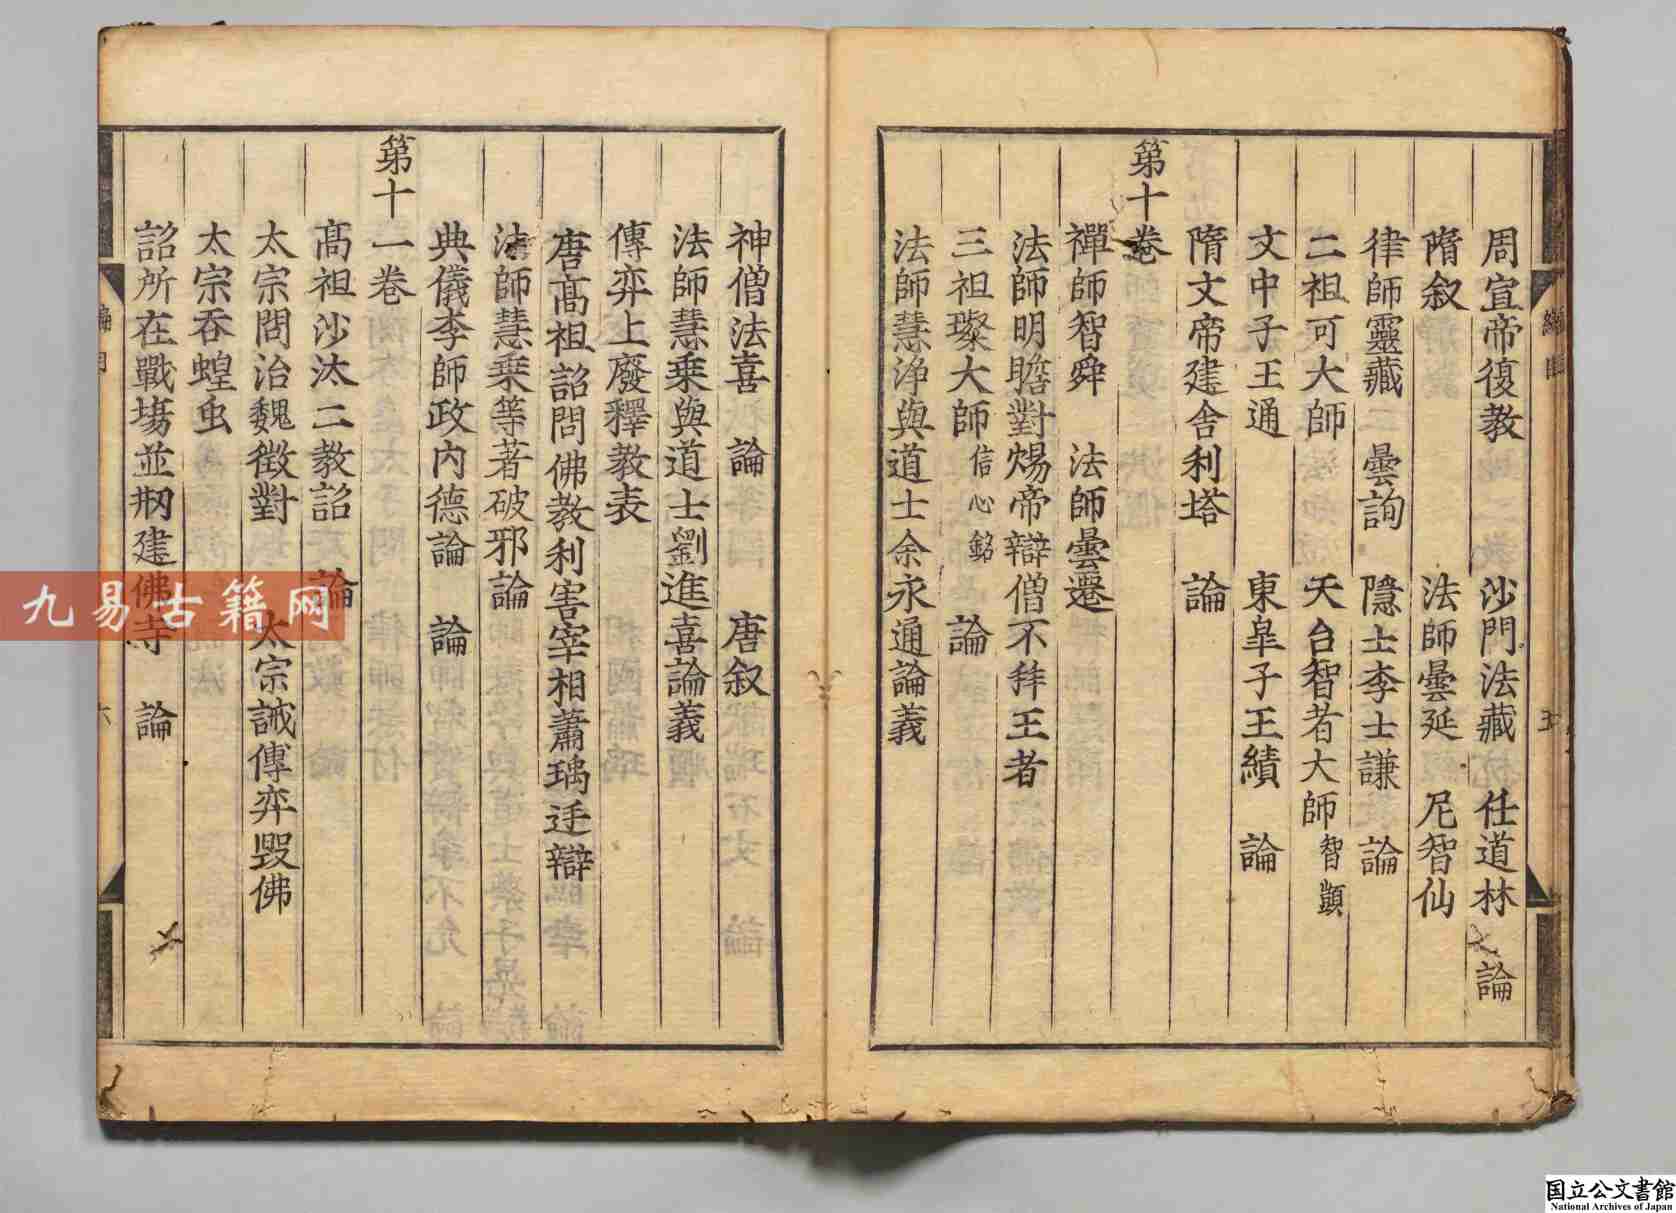 周宣帝復教 沙門法藏 任道林 論
隋叙 法師曇延 尼智仙
律師靈藏 曇詢 隱士李士謙 論
二祖可大師 天台智者大師智顗
文中子王通 東臯子王績 論
隋文帝建舍利塔 論
第十卷
禪師智舜 法師曇遷
法師明瞻對煬帝辯僧不拜王者
三祖璨大師信心銘 論
法師慧淨與道士余永通論義
神僧法喜 論 唐叙
法師慧乗與道士劉進喜論義
傅弈上廢釋教表
唐髙祖詔問佛教利害宰相蕭瑀廷辯
法師慧乗等著破邪論
典儀李師政内德論 論
第十一卷
髙祖沙汰二教詔 論
太宗問治魏徴對 太宗誡傅弈毀佛
太宗吞蝗虫
詔所在戰塲並剏建佛寺 論
六
九易古籍网
国立公文書館
National Archives of Japan